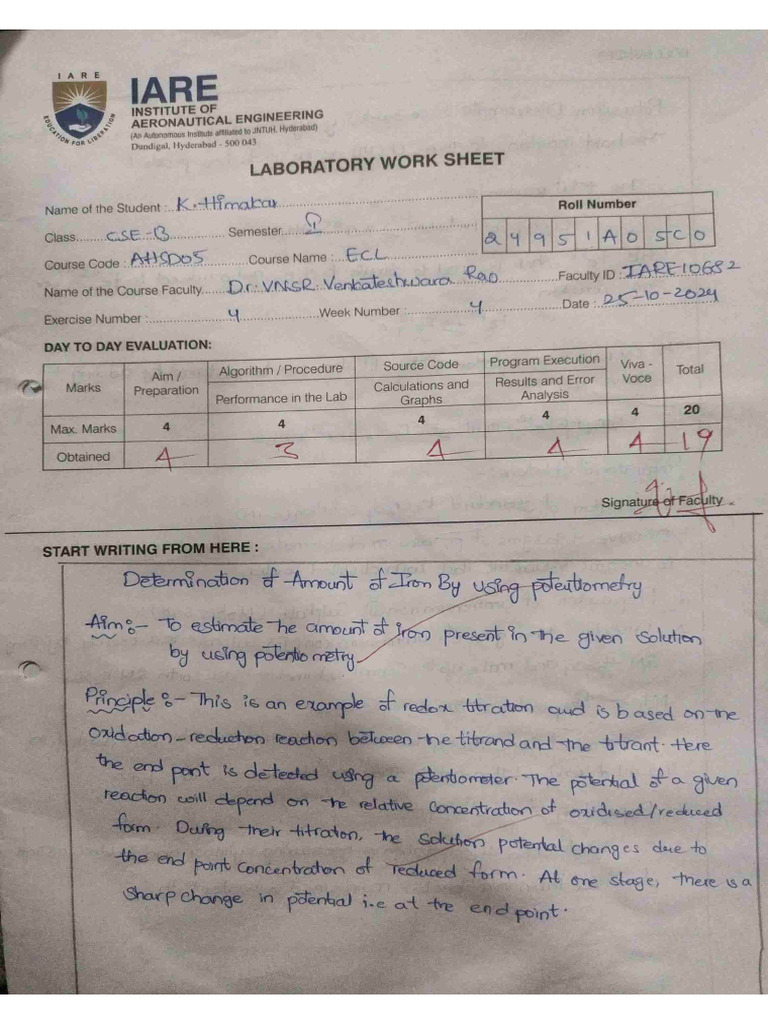 I A R E
EDUCATION FOR LIBERATION
IARE
INSTITUTE OF
AERONAUTICAL ENGINEERING
(An Autonomous Institute affiliated to JNTUH, Hyderabad)
Dundigal, Hyderabad - 500 043
LABORATORY WORK SHEET
Name of the Student : K. Himakar
Roll Number
Class CSE-B Semester I
2 4 9 5 1 A 0 5 C 0
Course Code : AHSD05 Course Name : ECL
Name of the Course Faculty Dr. VNSR. Venkateshwara Rao Faculty ID : IARE10682
Exercise Number : 4 Week Number : 4 Date : 25-10-2024
DAY TO DAY EVALUATION:
Marks Aim / Preparation Algorithm / Procedure Source Code Program Execution Viva - Voce Total
Performance in the Lab Calculations and Graphs Results and Error Analysis
Max. Marks 4 4 4 4 4 20
Obtained 4 3 4 4 4 19
Signature of Faculty
START WRITING FROM HERE :
Determination of Amount of Iron By using potentiometry
Aim :- To estimate the amount of iron present in the given solution
by using potentiometry
Principle :- This is an example of redox titration and is based on the
oxidation-reduction reaction between the titrand and the titrant. Here
the end point is detected using a potentiometer. The potential of a given
reaction will depend on the relative concentration of oxidised/reduced
form. During their titration, the solution potential changes due to
the end point concentration of reduced form. At one stage, there is a
sharp change in potential i.e at the end point.